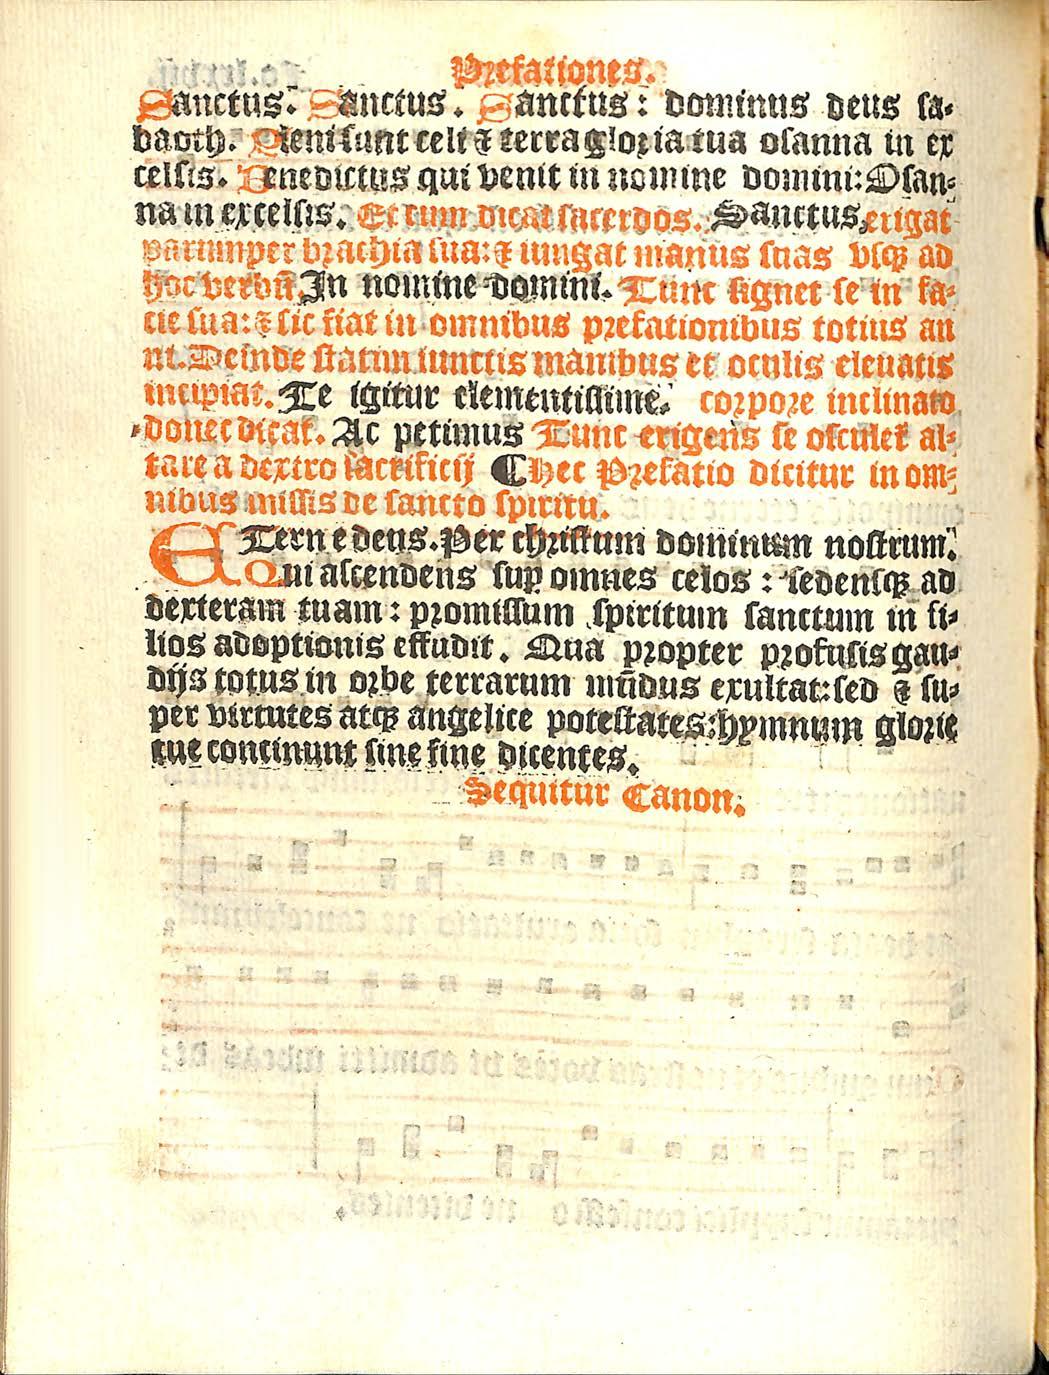 Prefationes.
Sanctus. Sanctus. Sanctus: dominus deus sa-
baoth. Pleni sunt celi ⁊ terra gloria tua osanna in ex
celsis. Benedictus qui venit in nomine domini: Osan-
na in excelsis. Et cum dicat sacerdos. Sanctus, erigat
parumper brachia sua: ⁊ iungat manus suas vsqꝫ ad
hoc verbū In nomine domini. Tunc signet se in fa-
cie sua: ⁊ sic fiat in omnibus prefationibus totius an
ni. Deinde statim iunctis manibus et oculis eleuatis
incipiat. Te igitur clementissime. corpore inclinato
donec dicat. Ac petimus Tunc erigens se osculet al-
tare a dextro sacrificij ¶ Hec Prefatio dicitur in om-
nibus missis de sancto spiritu.
ETerne deus. Per christum dominum nostrum.
Qui ascendens suꝑ omnes celos: sedensqꝫ ad
dexteram tuam: promissum spiritum sanctum in fi-
lios adoptionis effudit. Qua propter profusis gau-
dijs totus in orbe terrarum mūdus exultat: sed ⁊ su-
per virtutes atqꝫ angelice potestates: hymnum glorie
tue continunt sine fine dicentes.
Sequitur Canon.